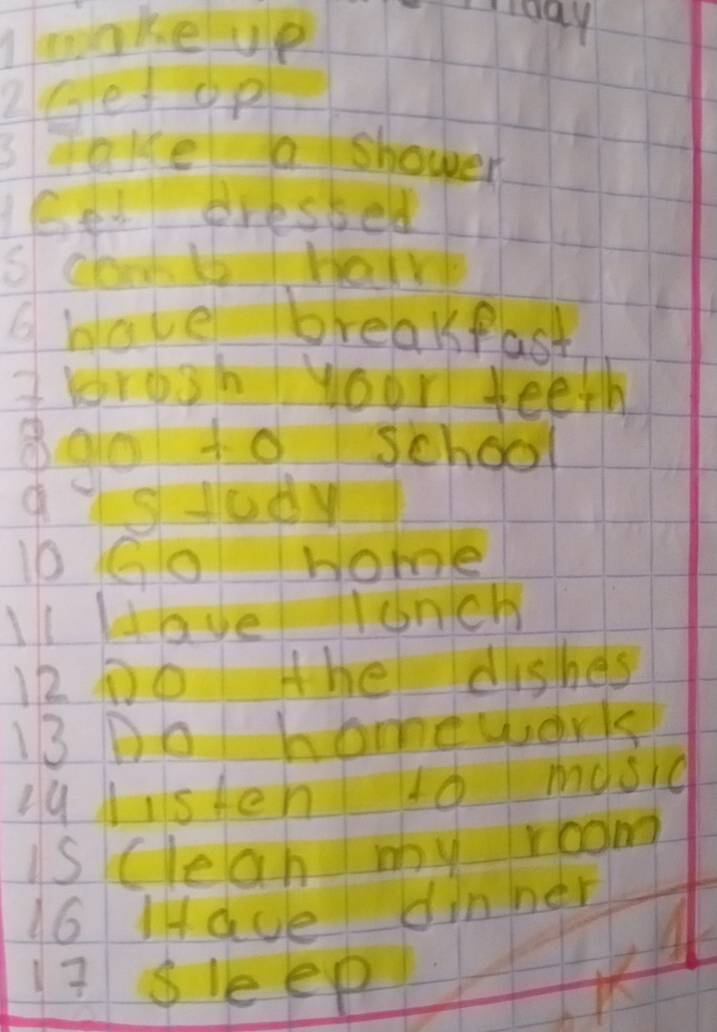 1 wake up
2 Get up
3 Take a shower
4 Get dressed
5 comb hair
6 have breakfast
7 brush your teeth
8 go to school
9 study
10 Go home
11 Have lunch
12 Do the dishes
13 Do homework
14 listen to music
15 Clean my room
16 Have dinner
17 sleep